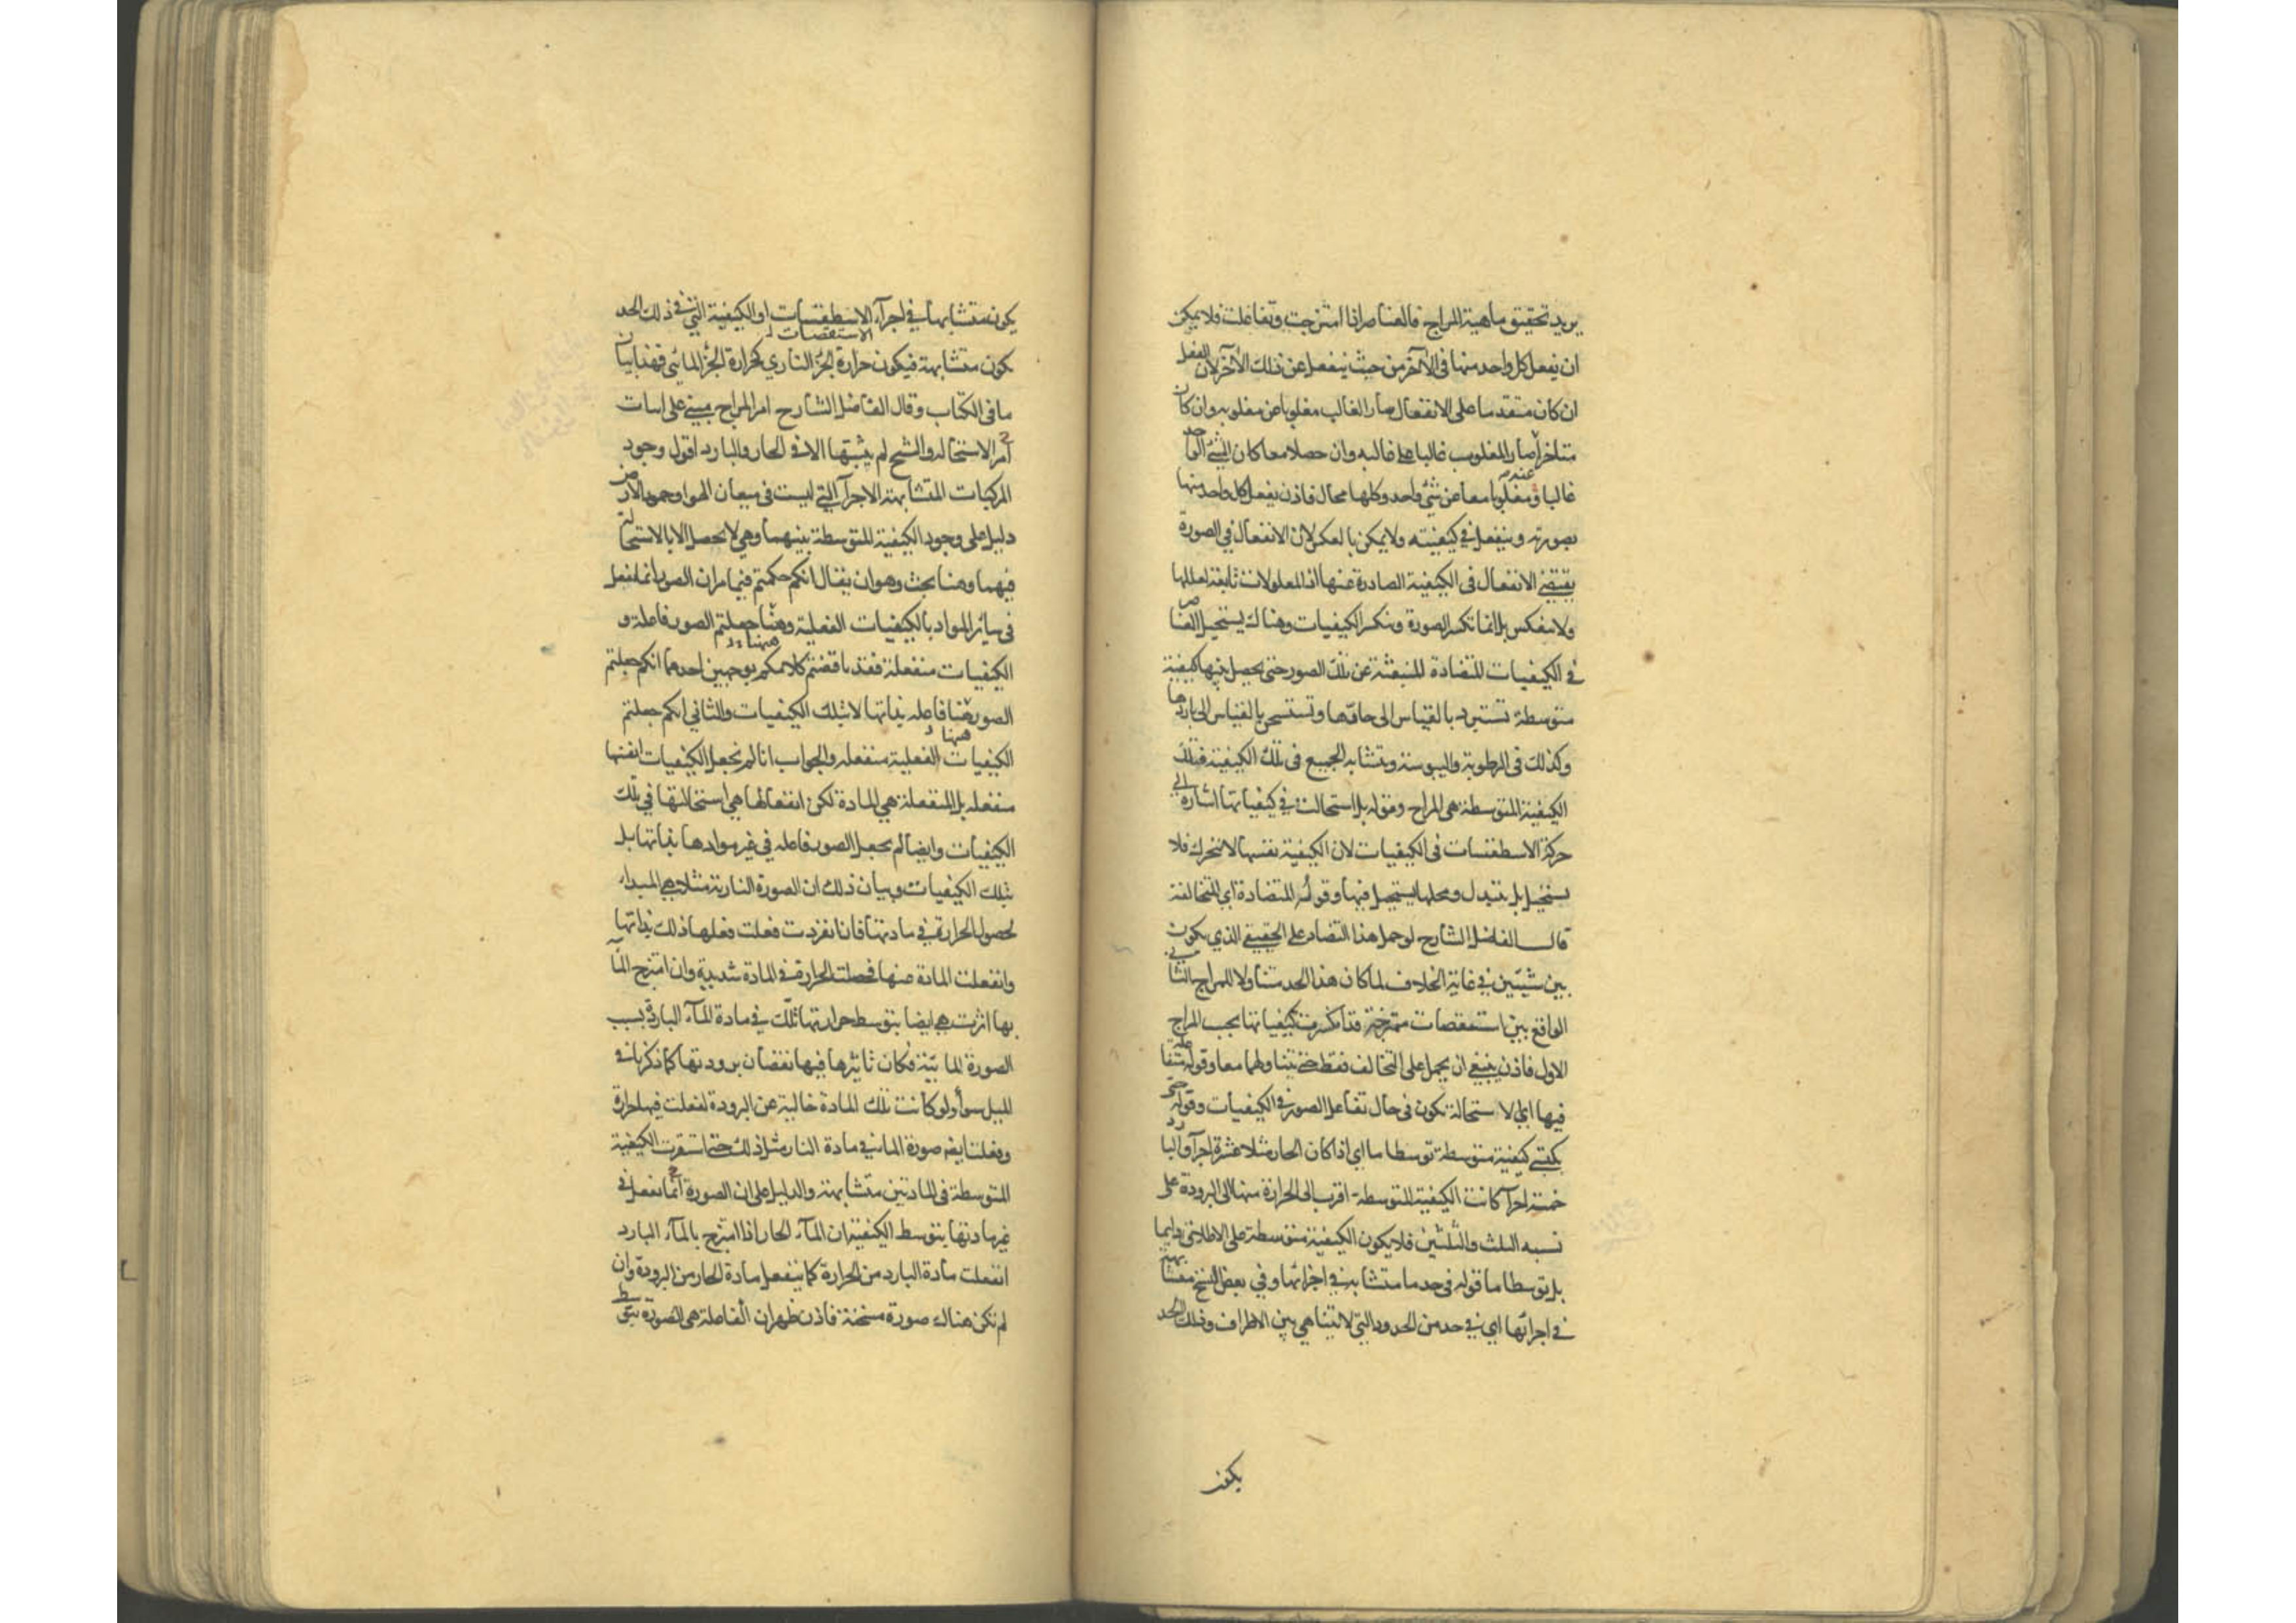 يريد تحقيق ماهية المزاج فالعناصر اذا امتزجت وتفاعلت فلا يمكن
ان يفعل كل واحد منها فى الآخر من حيث ينفعل عن ذلك الآخر لان الفعل
ان كان متقدما على الانفعال صار الغالب مغلوبا عن مغلوبه وان كان
متاخرا صار المغلوب غالبا على غالبه وان حصلا معا كان الشئ الواحد
غالبا ومغلوبا معا عن شئ واحد وكلها محال فاذن يفعل كل واحد منها
بصورته وينفعل فى كيفيته ولا يمكن بالعكس لان الانفعال فى الصورة
يقتضى الانفعال فى الكيفية الصادرة عنها اذ المعلولات تابعة لعللها
ولا ينعكس بل انما تكسر الصورة وتنكسر الكيفيات وهناك يستحيل العناصر
فى الكيفيات المتضادة المنبعثة عن تلك الصور حتى يحصل فيها كيفية
متوسطة تستبرد بالقياس الى حارها وتستسخن بالقياس الى باردها
وكذلك فى الرطوبة واليبوسة ويتشابه الجميع فى تلك الكيفية فتلك
الكيفية المتوسطة هى المزاج وقوله بل استحالت فى كيفياتها اشارة الى
حركة الاسطقسات فى الكيفيات لان الكيفية نفسها لا تتحرك فلا
يستحيل بل تتبدل ومحلها يستحيل فيها وقوله المتضادة اى المتخالفة
قال الفاضل الشارح لو حمل هذا التضاد على الحقيقى الذى يكون
بين شيئين فى غاية الخلاف لما كان هذا الحد متناولا للمزاج الثانى
الواقع بين استقصات ممتزجة قد انكسرت كيفياتها بحسب المزاج
الاول فاذن ينبغى ان يحمل على التخالف فقط حتى يتناولهما معا وقوله متفاعلة
فيها اى الاستحالة تكون فى حال تفاعل الصور فى الكيفيات وقوله حتى
يكتسى كيفية متوسطة توسطا ما اى اذا كان الحار مثلا عشرة اجزآء والبارد
خمسة اجزآء كانت الكيفية المتوسطة اقرب الى الحرارة منها الى البرودة على
نسبة الثلث والثلثين فلا يكون الكيفية متوسطة على الاطلاق دايما
بل توسطا ما قوله فى حد ما متشابه فى اجزائها وفى بعض النسخ متشابهة
فى اجزائها اى فى حد من الحدود التى لا تتناهى بين الاطراف وذلك الحد
يكون
يكون متشابها فى اجزآء الاسطقسات او الكيفية التى فى ذلك الحد
الاستقصات
يكون متشابهة فيكون حرارة الجزء النارى كحرارة الجزء المائى فهذا بيان
ما فى الكتاب وقال الفاضل الشارح امر المزاج مبنى على اثبات
امر الاستحالة والشيخ لم يثبتها الا فى الحار والبارد اقول وجود
المركبات المتشابهة الاجزآء التى ليست فى ميعان الهوا وجمود الارض
دليل على وجود الكيفية المتوسطة بينهما وهى لا تحصل الا بالاستحالة
فيهما وهنا بحث وهو ان يقال انكم حكمتم فيما مر ان الصور انما تفعل
فى سائر المواد بالكيفيات الفعلية وهنا جعلتم الصور فاعلة و
ههنا
الكيفيات منفعلة فقد ناقضتم كلامكم بوجهين احدهما انكم جعلتم
الصور هنا فاعلة بذاتها لا بتلك الكيفيات والثانى انكم جعلتم
ههنا
الكيفيات الفعلية منفعلة والجواب انا لم نجعل الكيفيات انفسها
منفعلة بل المنفعلة هى المادة لكن انفعالها هى استحالتها فى تلك
الكيفيات وايضا لم نجعل الصور فاعلة فى غير موادها بذاتها بل
بتلك الكيفيات وبيان ذلك ان الصورة النارية مثلا هى المبداء
لحصول الحرارة فى مادتها فاذا انفردت فعلت فعلها ذلك بذاتها
وانفعلت المادة عنها فحصلت الحرارة فى المادة شديدة وان امتزج المآء
بها اثرت هى ايضا بتوسط حرارتها تلك فى مادة المآء الباردة بسبب
الصورة المائية فكان تاثيرها فيها نقصان برودتها كما ذكرنا فى
الميل سوآء ولو كانت تلك المادة خالية عن البرودة لفعلت فيها حرارة
وفعلت ايضا صورة الماء فى مادة النار مثل ذلك حتى استقرت الكيفية
المتوسطة فى المادتين متشابهة والدليل على ان الصورة انما تفعل فى
غير مادتها بتوسط الكيفية ان المآء الحار اذا امتزج بالمآء البارد
انفعلت مادة البارد من الحرارة كما ينفعل مادة الحار من البرودة وان
لم تكن هناك صورة مسخنة فاذن ظهر ان الفاعلة هى الصورة بتوسط